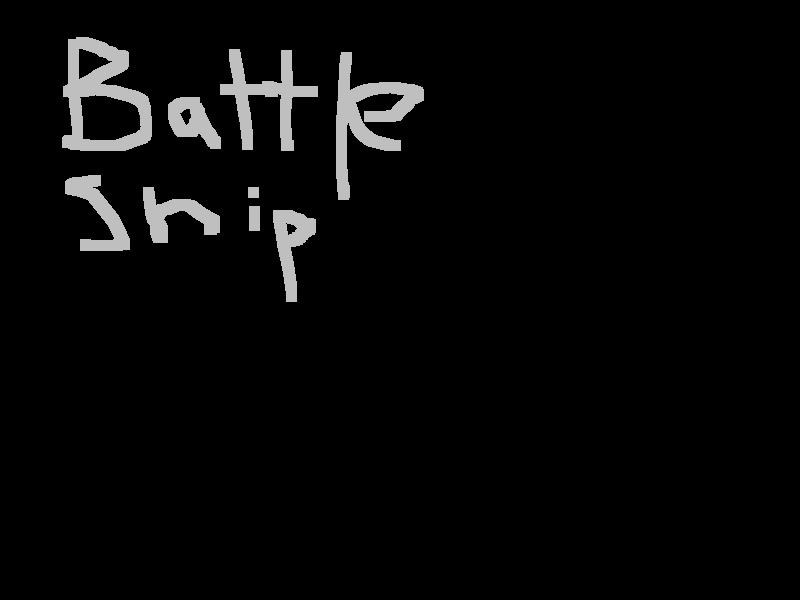 Battle
Ship